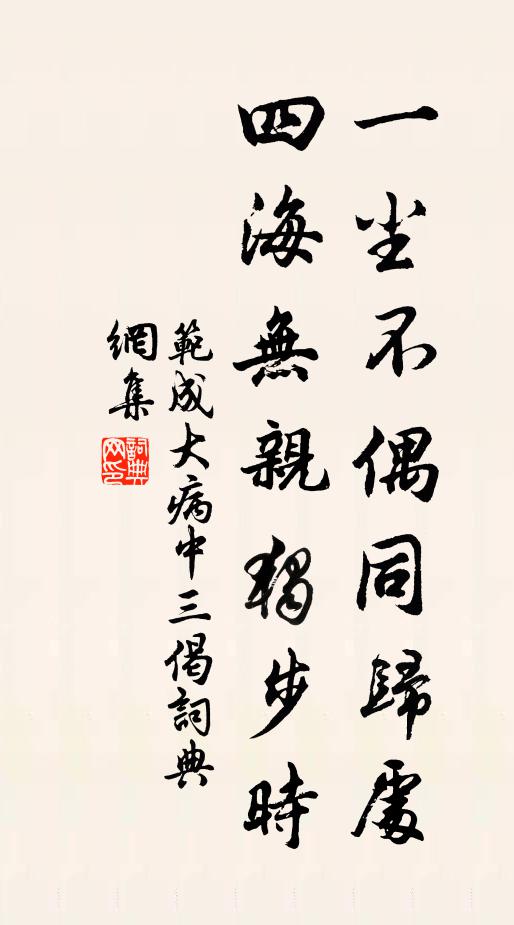 一尘不偶同歸處
四海無親獨步時
範成大病中三偈詞典
網集
詞典網印